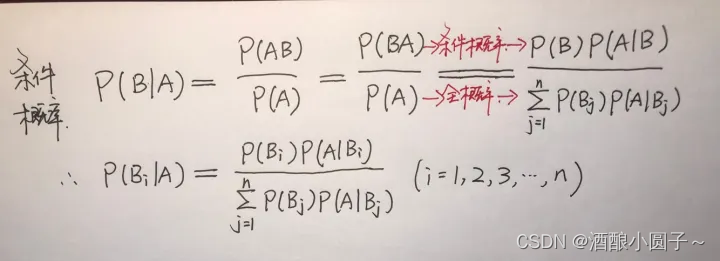 条件概率. P(B|A) = P(AB)/P(A) = P(BA)/P(A) →条件概率→ →全概率→ = P(B)P(A|B)/∑_{j=1}^{n} P(B_j)P(A|B_j)
∴ P(B_i|A) = P(B_i)P(A|B_i)/∑_{j=1}^{n} P(B_j)P(A|B_j) (i=1,2,3,⋯,n)
CSDN @酒酿小圆子～